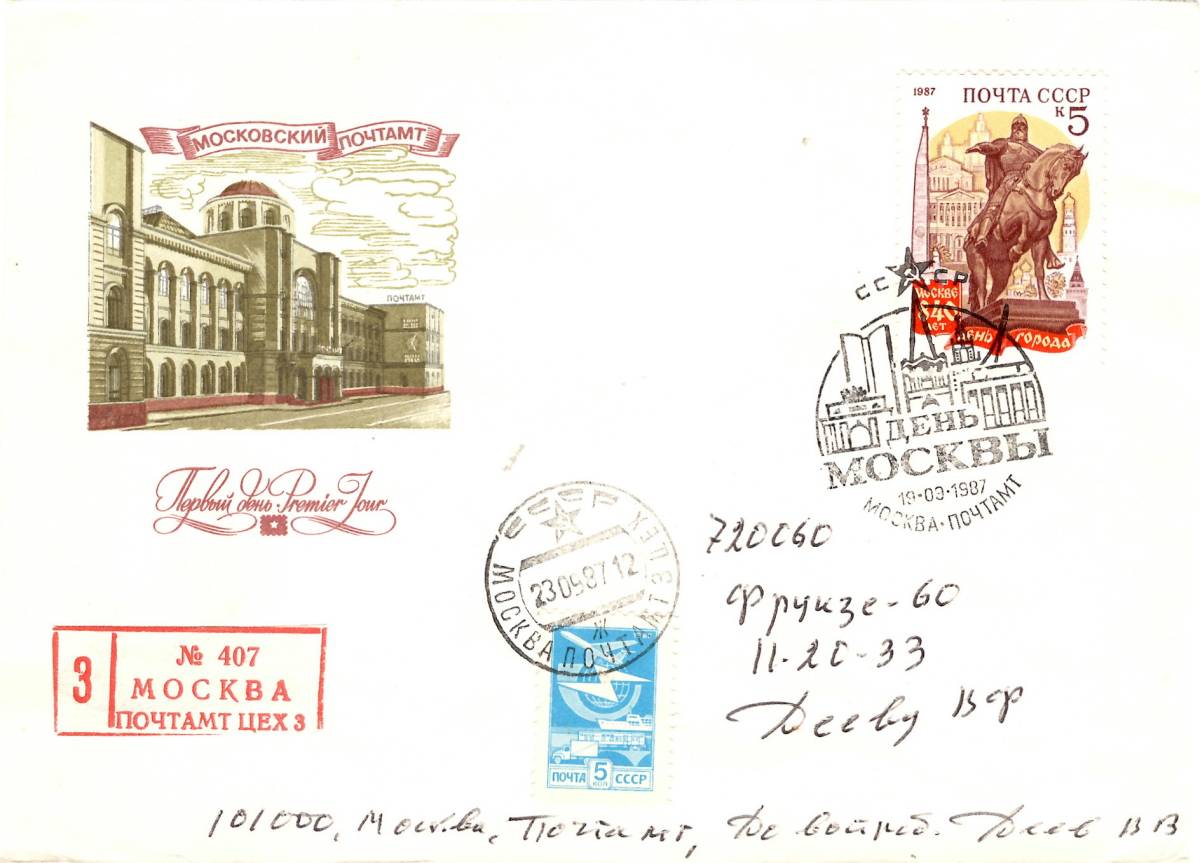 МОСКОВСКИЙ ПОЧТАМТ
ПОЧТАМТ
Первый день Premier Jour
1987 ПОЧТА СССР
К 5
МОСКВЕ
840
ЛЕТ
ДЕНЬ ГОРОДА
СССР
ДЕНЬ
МОСКВЫ
19-09-1987
МОСКВА·ПОЧТАМТ
СССР
23 09 87 12
Ж
МОСКВА ПОЧТАМТ
З
№ 407
МОСКВА
ПОЧТАМТ ЦЕХ 3
720060
Фрунзе-60
11-20-33
Дееву ВФ
ПОЧТА 5 СССР
КОП
101000, Москва, Почтамт, До востреб. Деев ВВ